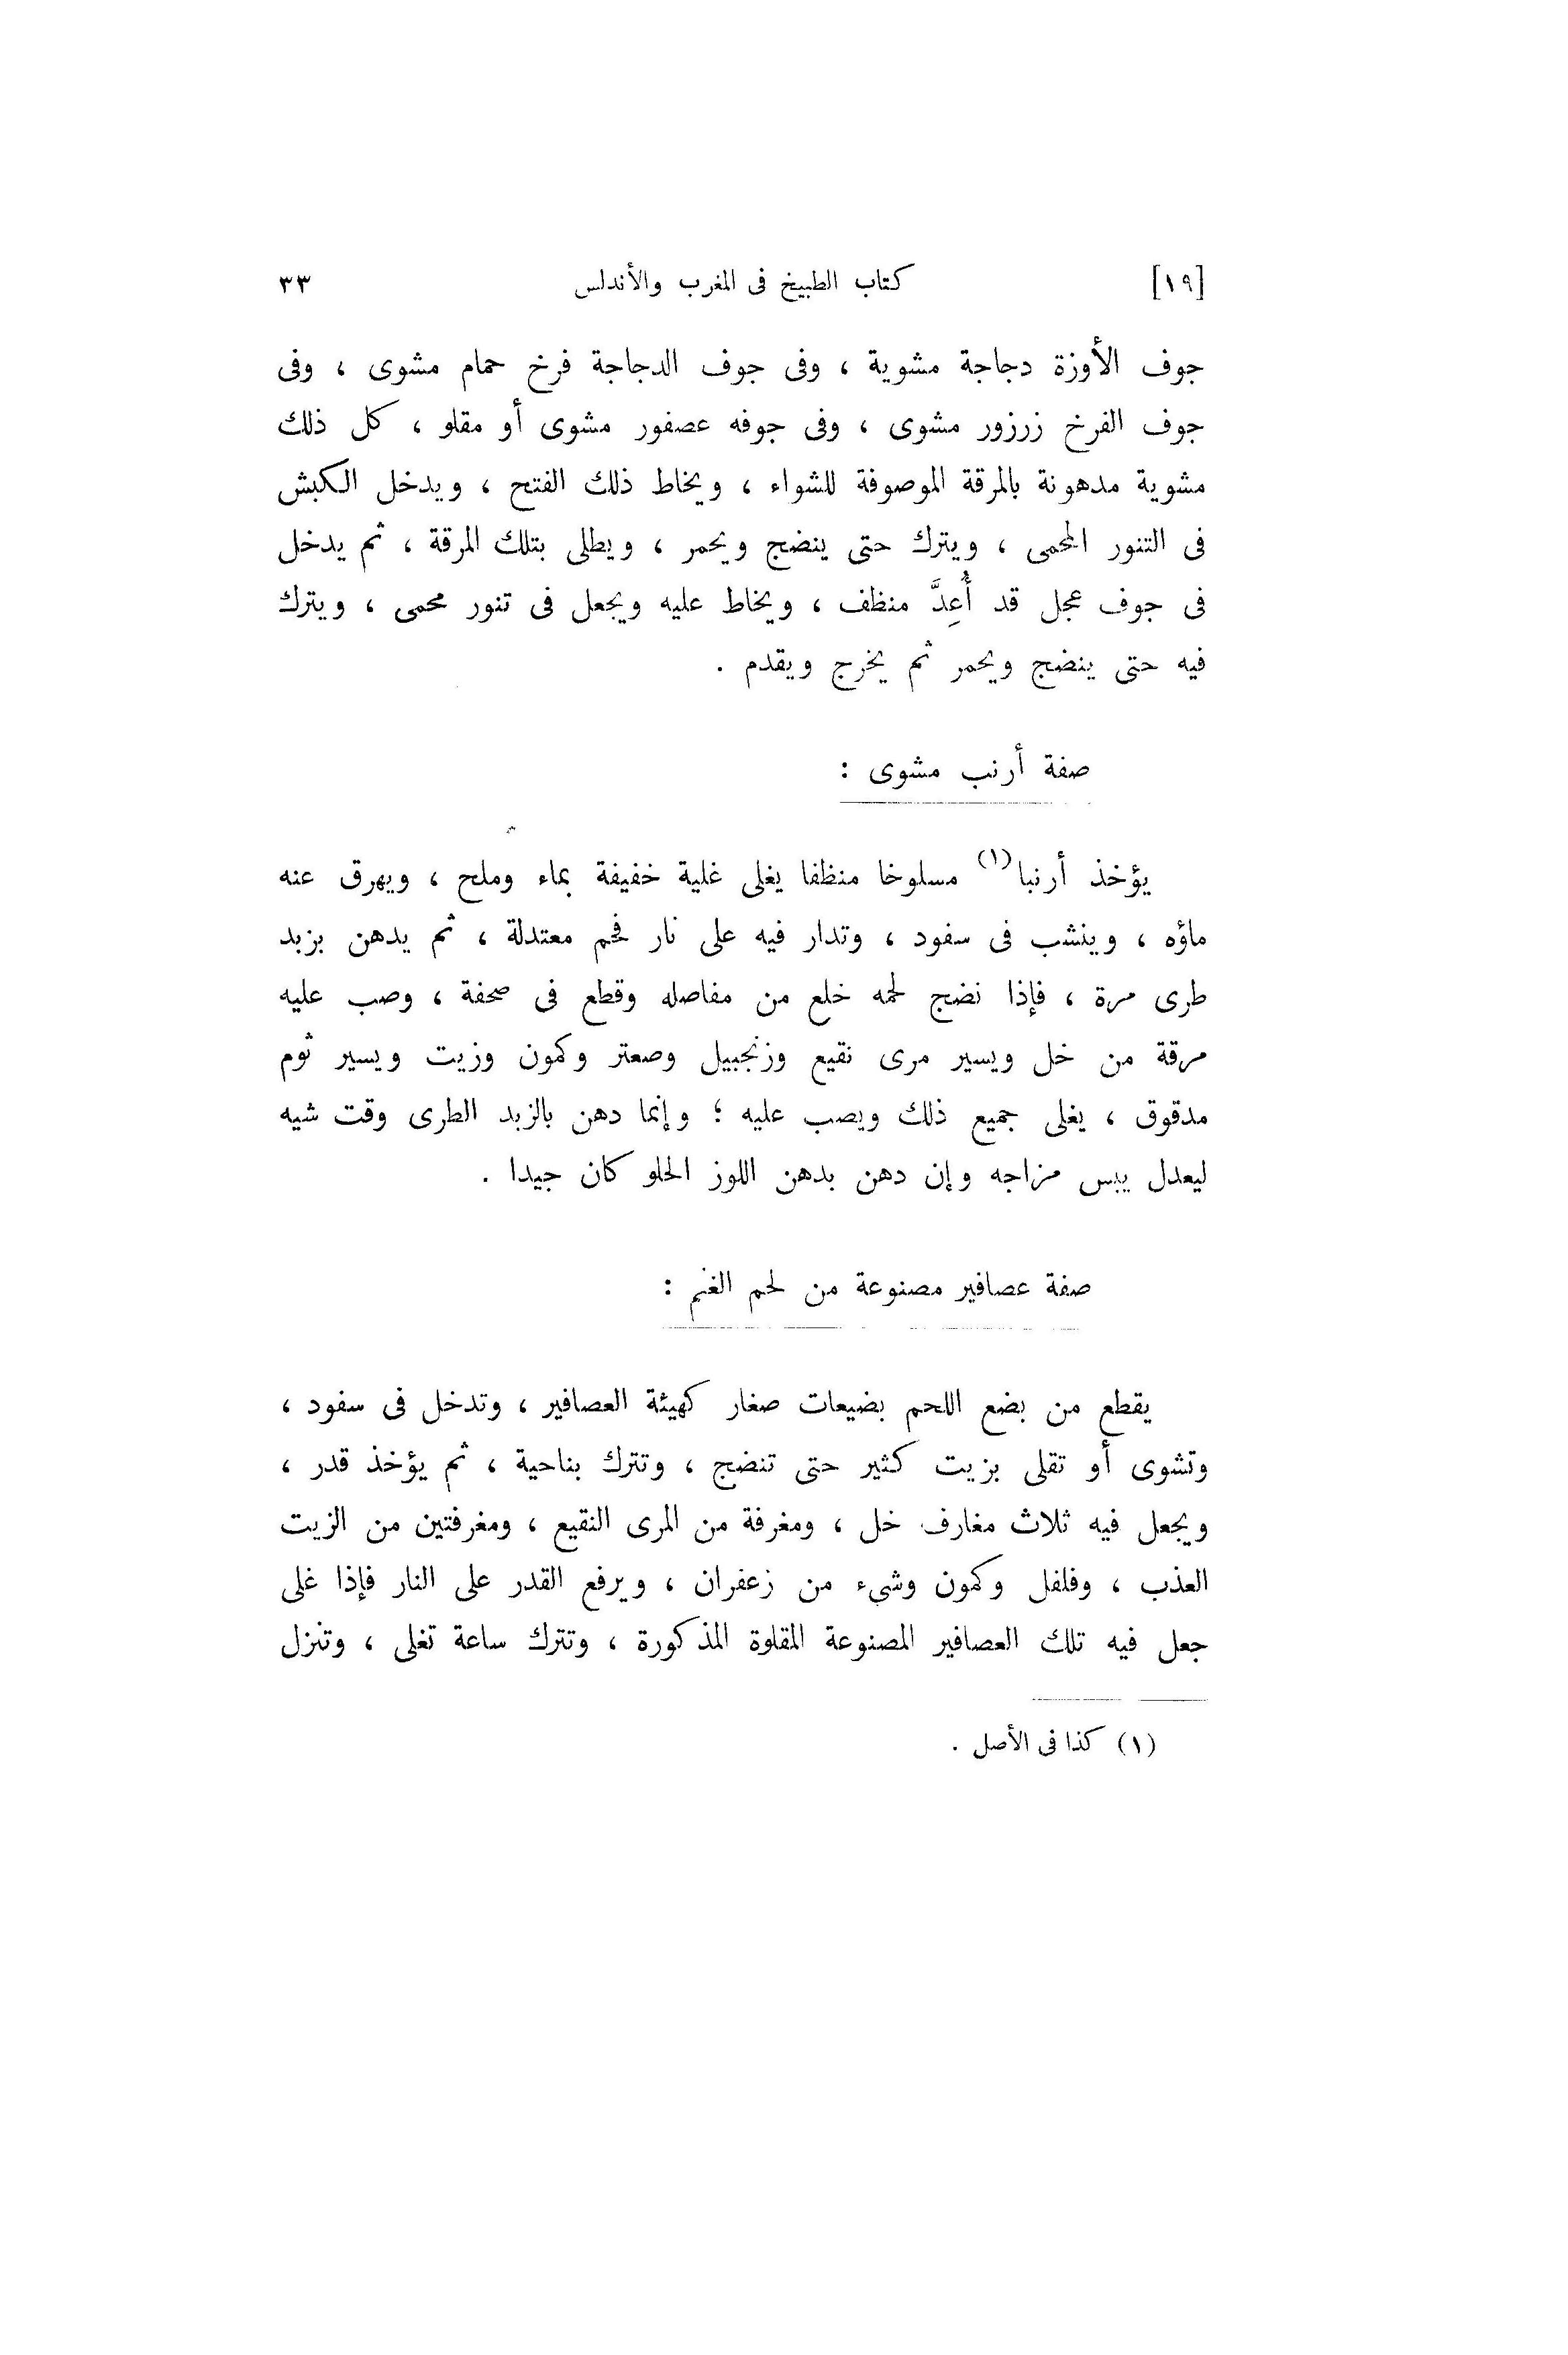 [١٩] كتاب الطبيخ فى المغرب والأندلس ٣٣
جوف الأوزة دجاجة مشوية ، وفى جوف الدجاجة فرخ حمام مشوى ، وفى
جوف الفرخ زرزور مشوى ، وفى جوفه عصفور مشوى أو مقلو ، كل ذلك
مشوية مدهونة بالمرقة الموصوفة للشواء ، ويخاط ذلك الفتح ، ويدخل الكبش
فى التنور المحمى ، ويترك حتى ينضج ويحمر ، ويطلى بتلك المرقة ، ثم يدخل
فى جوف عجل قد أُعِدَّ منظف ، ويخاط عليه ويجعل فى تنور محمى ، ويترك
فيه حتى ينضج ويحمر ثم يخرج ويقدم .
صفة أرنب مشوى :
يؤخذ أرنبا(١) مسلوخا منظفا يغلى غلية خفيفة بماء وملح ، ويهرق عنه
ماؤه ، وينشب فى سفود ، وتدار فيه على نار فحم معتدلة ، ثم يدهن بزبد
طرى مرة ، فإذا نضج لحمه خلع من مفاصله وقطع فى صحفة ، وصب عليه
مرقة من خل ويسير مرى نقيع وزنجبيل وصعتر وكمون وزيت ويسير ثوم
مدقوق ، يغلى جميع ذلك ويصب عليه ؛ وإنما دهن بالزبد الطرى وقت شيه
ليعدل يبس مزاجه وإن دهن بدهن اللوز الحلو كان جيدا .
صفة عصافير مصنوعة من لحم الغنم :
يقطع من بضع اللحم بضيعات صغار كهيئة العصافير ، وتدخل فى سفود ،
وتشوى أو تقلى بزيت كثير حتى تنضج ، وتترك بناحية ، ثم يؤخذ قدر ،
ويجعل فيه ثلاث مغارف خل ، ومغرفة من المرى النقيع ، ومغرفتين من الزيت
العذب ، وفلفل وكمون وشىء من زعفران ، ويرفع القدر على النار فإذا غلى
جعل فيه تلك العصافير المصنوعة المقلوة المذكورة ، وتترك ساعة تغلى ، وتنزل
(١) كذا فى الأصل .